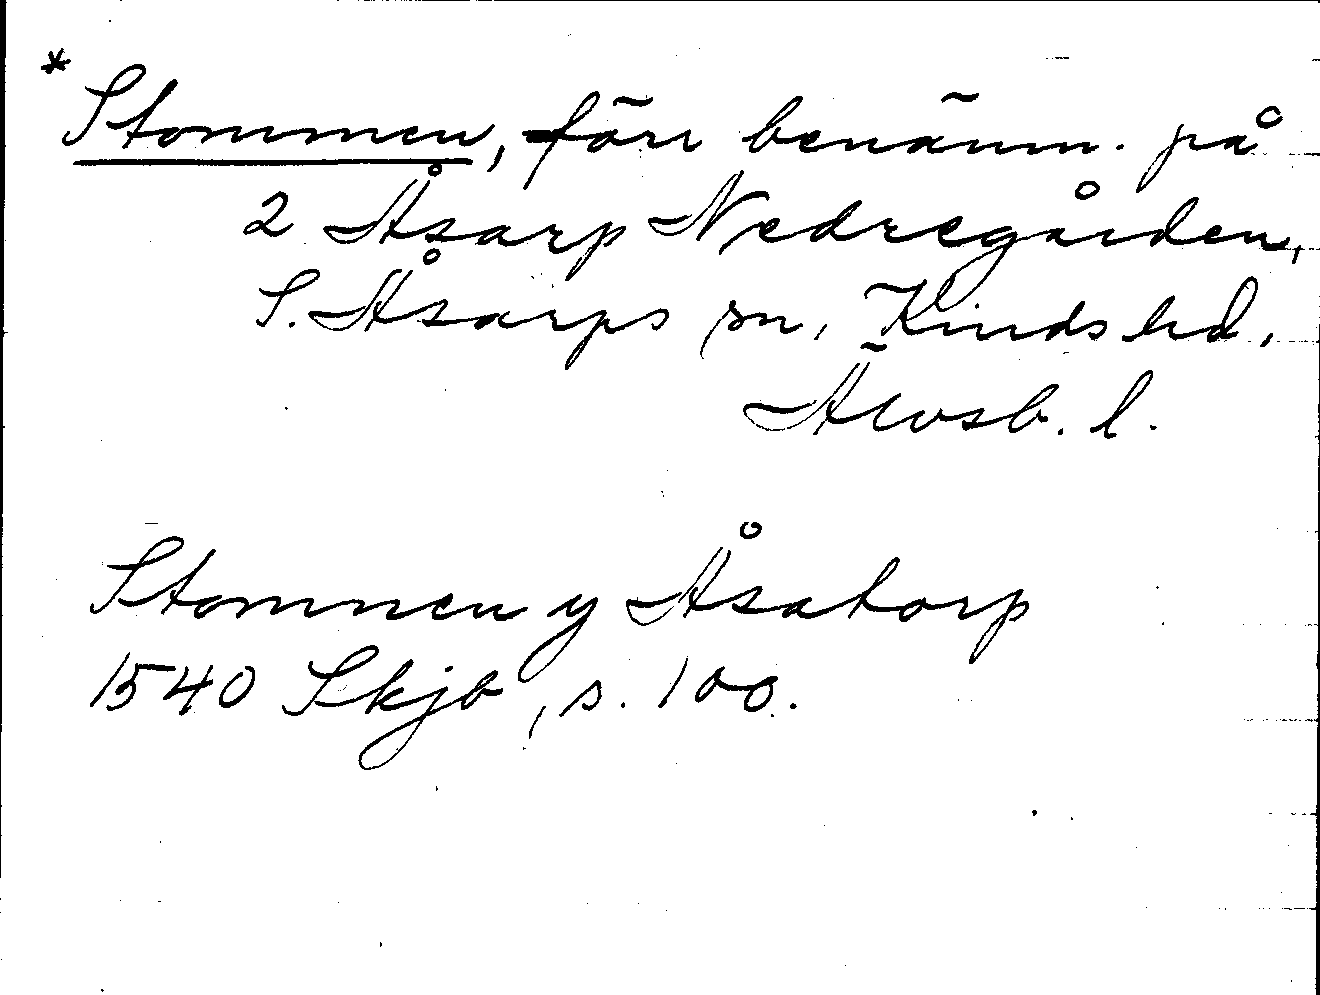 * Stommen, förr benämn. på
2 Åsarp Nedregården,
S. Åsarps sn, Kinds hd,
Älvsb. l.
Stomnen y Åsatorp
1540 Skjb, s. 100.